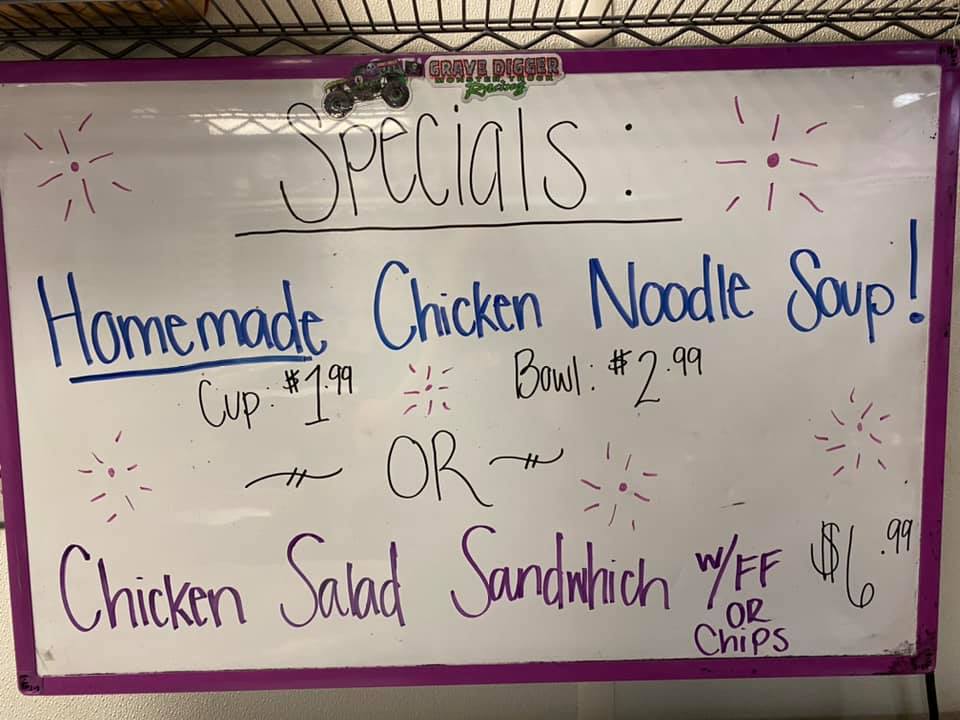 GRAVE DIGGER
MONSTER TRUCK
Racing
Specials:
Homemade Chicken Noodle Soup!
Cup: $1.99 Bowl: $2.99
OR
Chicken Salad Sandwhich w/FF $6.99
OR
Chips